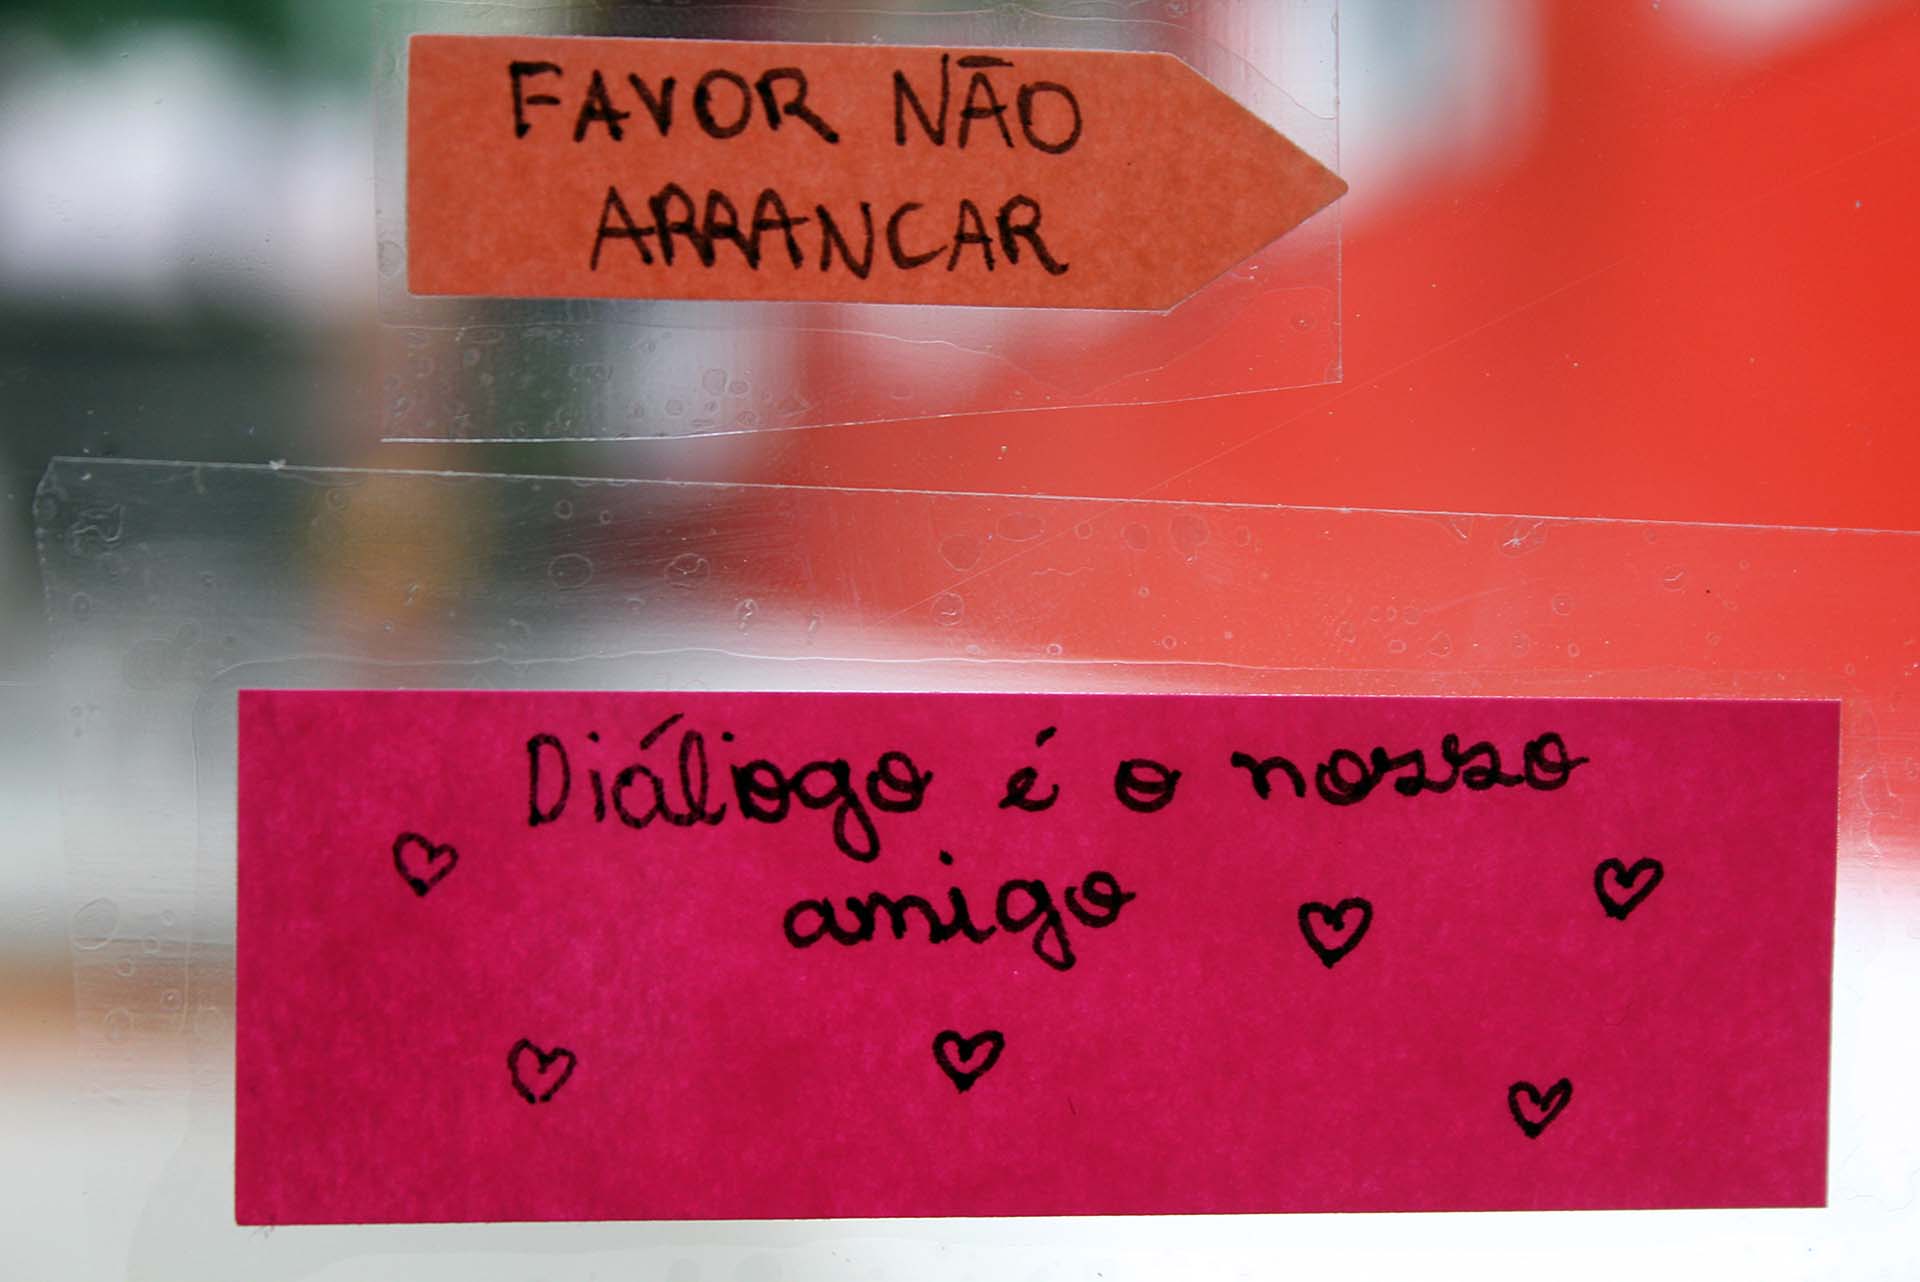 FAVOR NÃO
ARRANCAR
Diálogo é o nosso
amigo